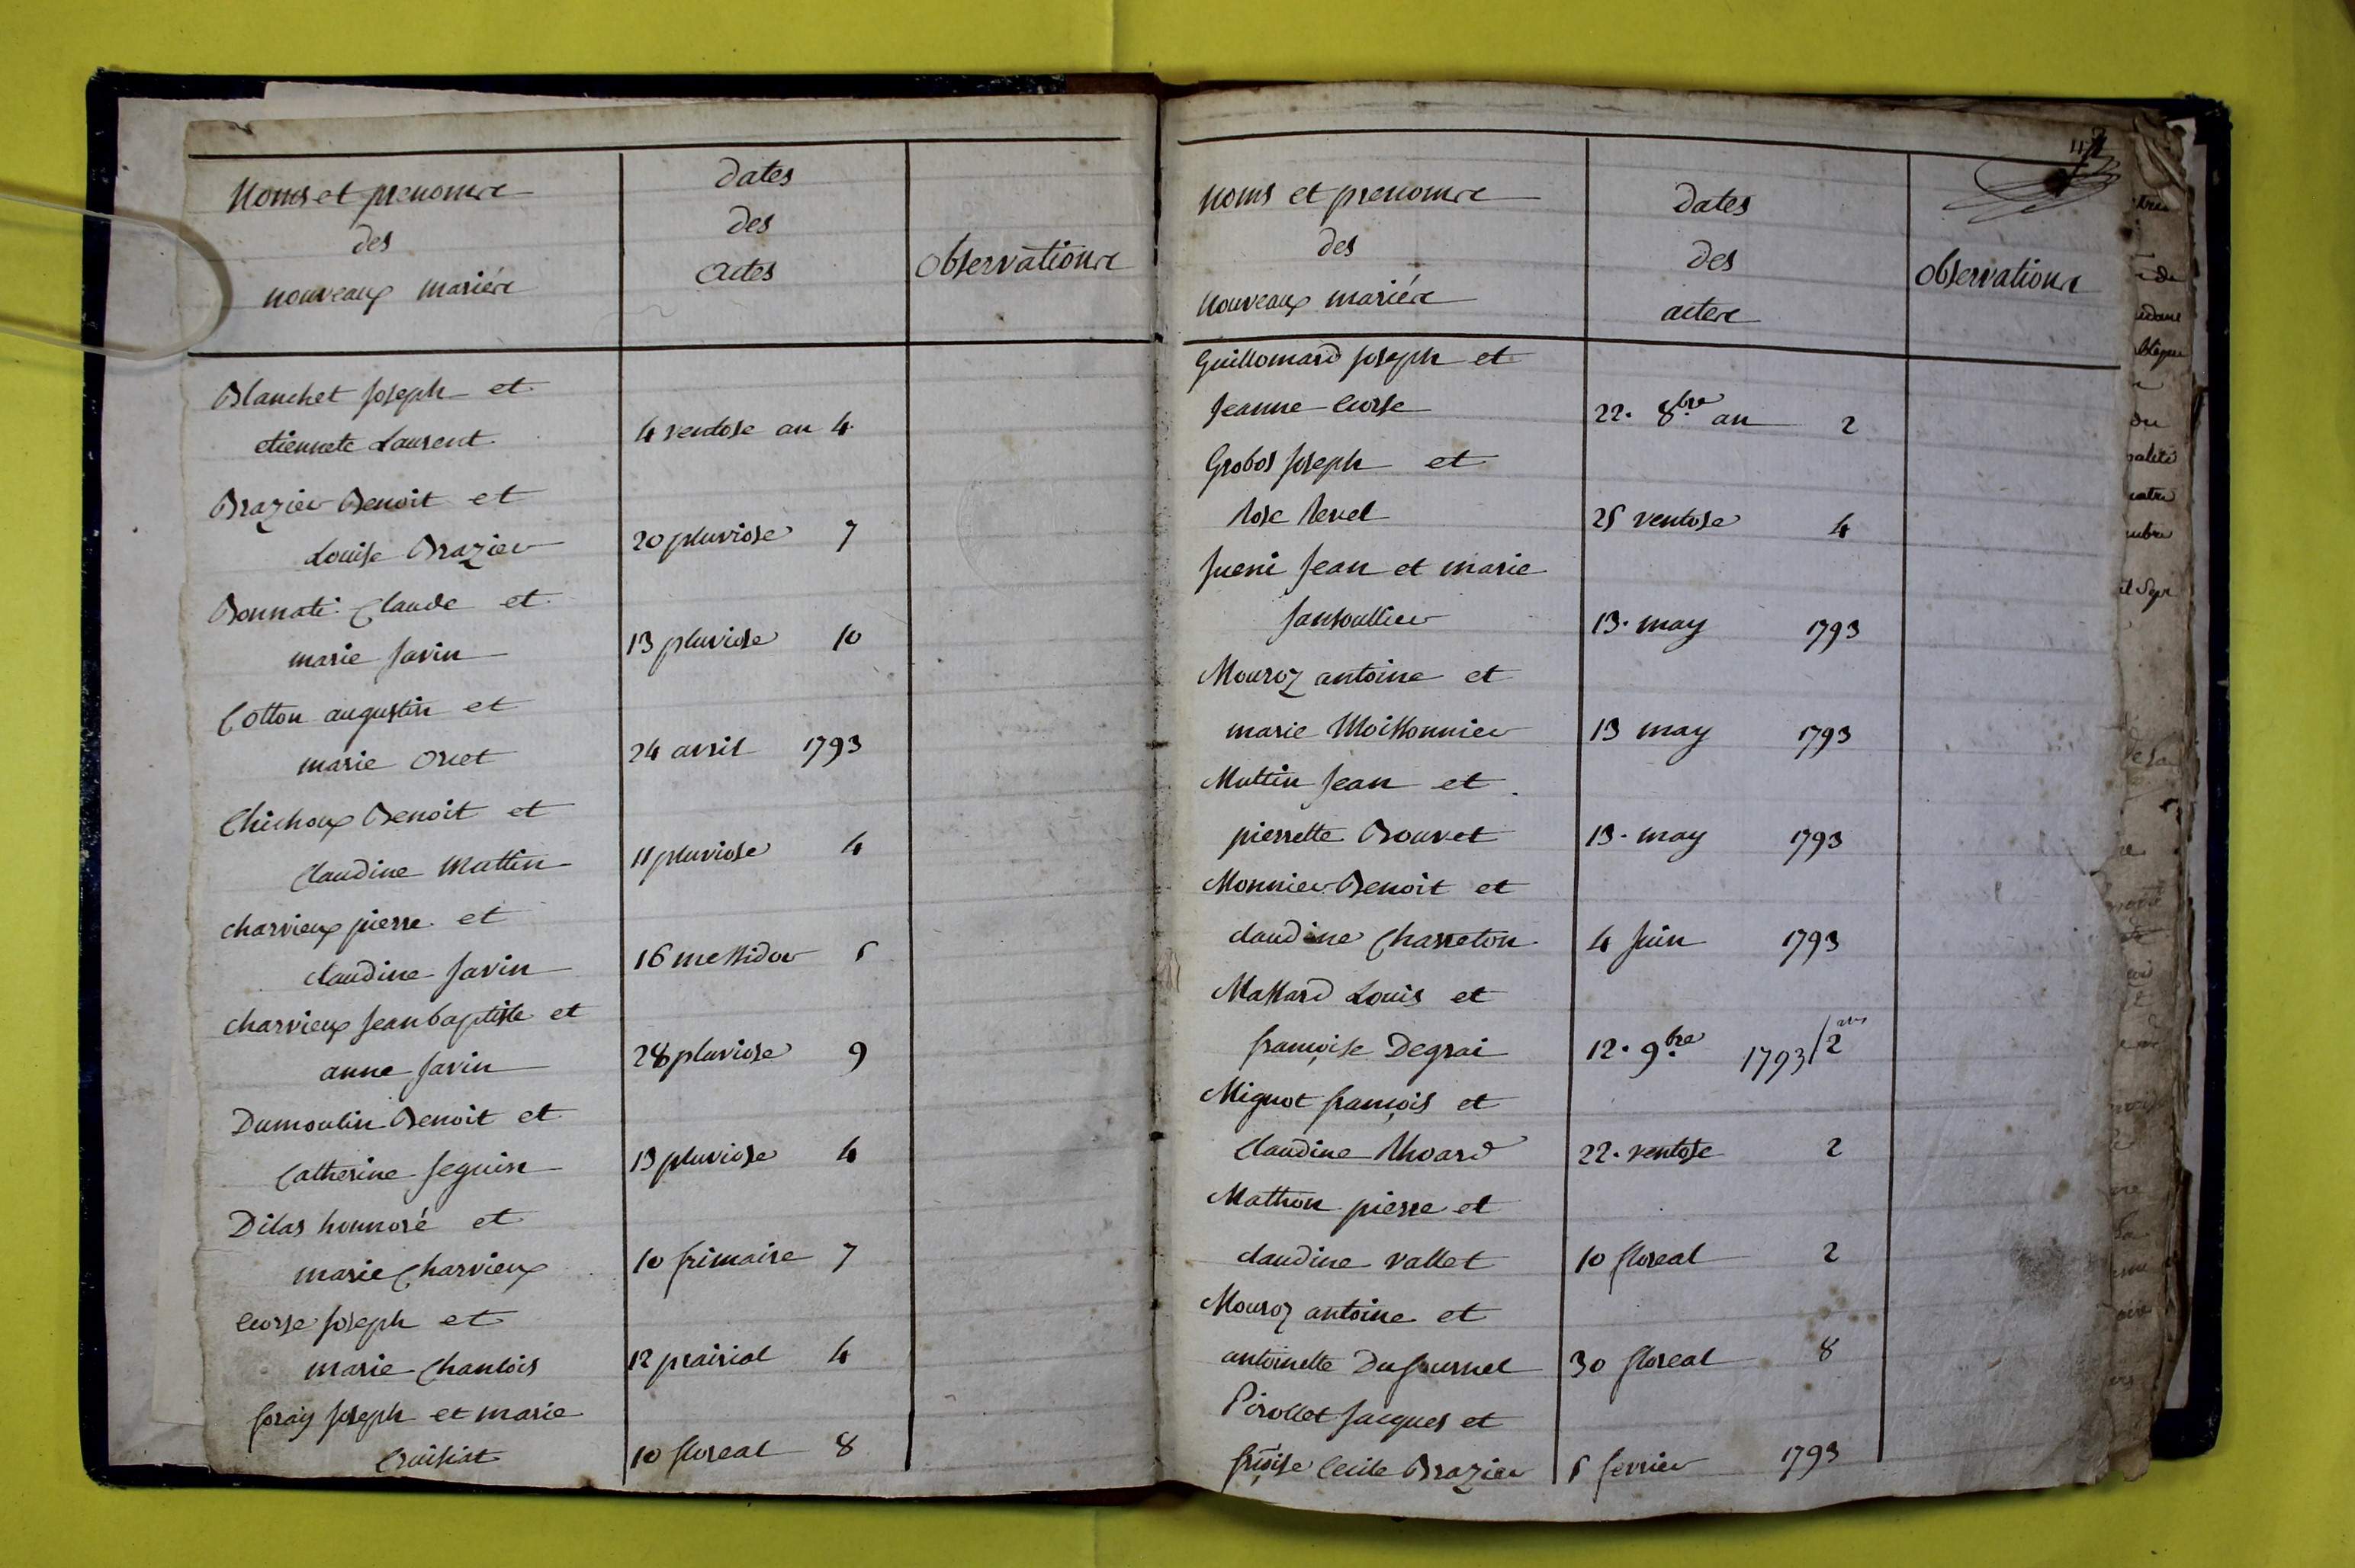 Noms et prenoms
des
nouveaux mariés
dates
des
actes
observations
Blanchet Joseph et
etiennete Laurent 4 ventose an 4
Brazier Benoit et
Louise Brazier 20 pluviose 7
Bonnate Claude et
marie Savin 13 pluviose 10
Cotton augustin et
marie 24 avril 1793
Chichoux Benoit et
Claudine Mattin 11 pluviose 4
charvieux pierre et
claudine Savin 16 messidor 5
charvieux Jean baptiste et
anne Savin 28 pluviose 9
Dumoulin Benoit et
Catherine Seguin 13 pluviose 4
Dilas honnoré et
marie Charvieux 10 frimaire 7
Corse Joseph et
marie Chanlois 12 prairial 4
foray Joseph et marie
Cruisiat 10 floreal 8
noms et prenoms
des
nouveaux mariés
dates
des
actes
observations
Guillomard Joseph et
Jeanne Corse 22. 8.bre an 2
Grobos Joseph et
Rose Revel 25 ventose 4
Jueni Jean et marie
13. may 1793
Mouroz antoine et
marie Moissonnier 13 may 1793
Muttin Jean et
pierrette Bouvet 13. may 1793
Monnier Benoit et
claudine Charreton 4 Juin 1793
Massard Louis et
françoise Degrai 12. 9.bre 1793/2
Mignot françois et
Claudine 22. ventose 2
Mathon pierre et
claudine vallet 10 floreal 2
Mouroz antoine et
antoinette Dufournel 30 floreal 8
Pirollet Jacques et
frñoise Cecile Brazier 5 fevrier 1793